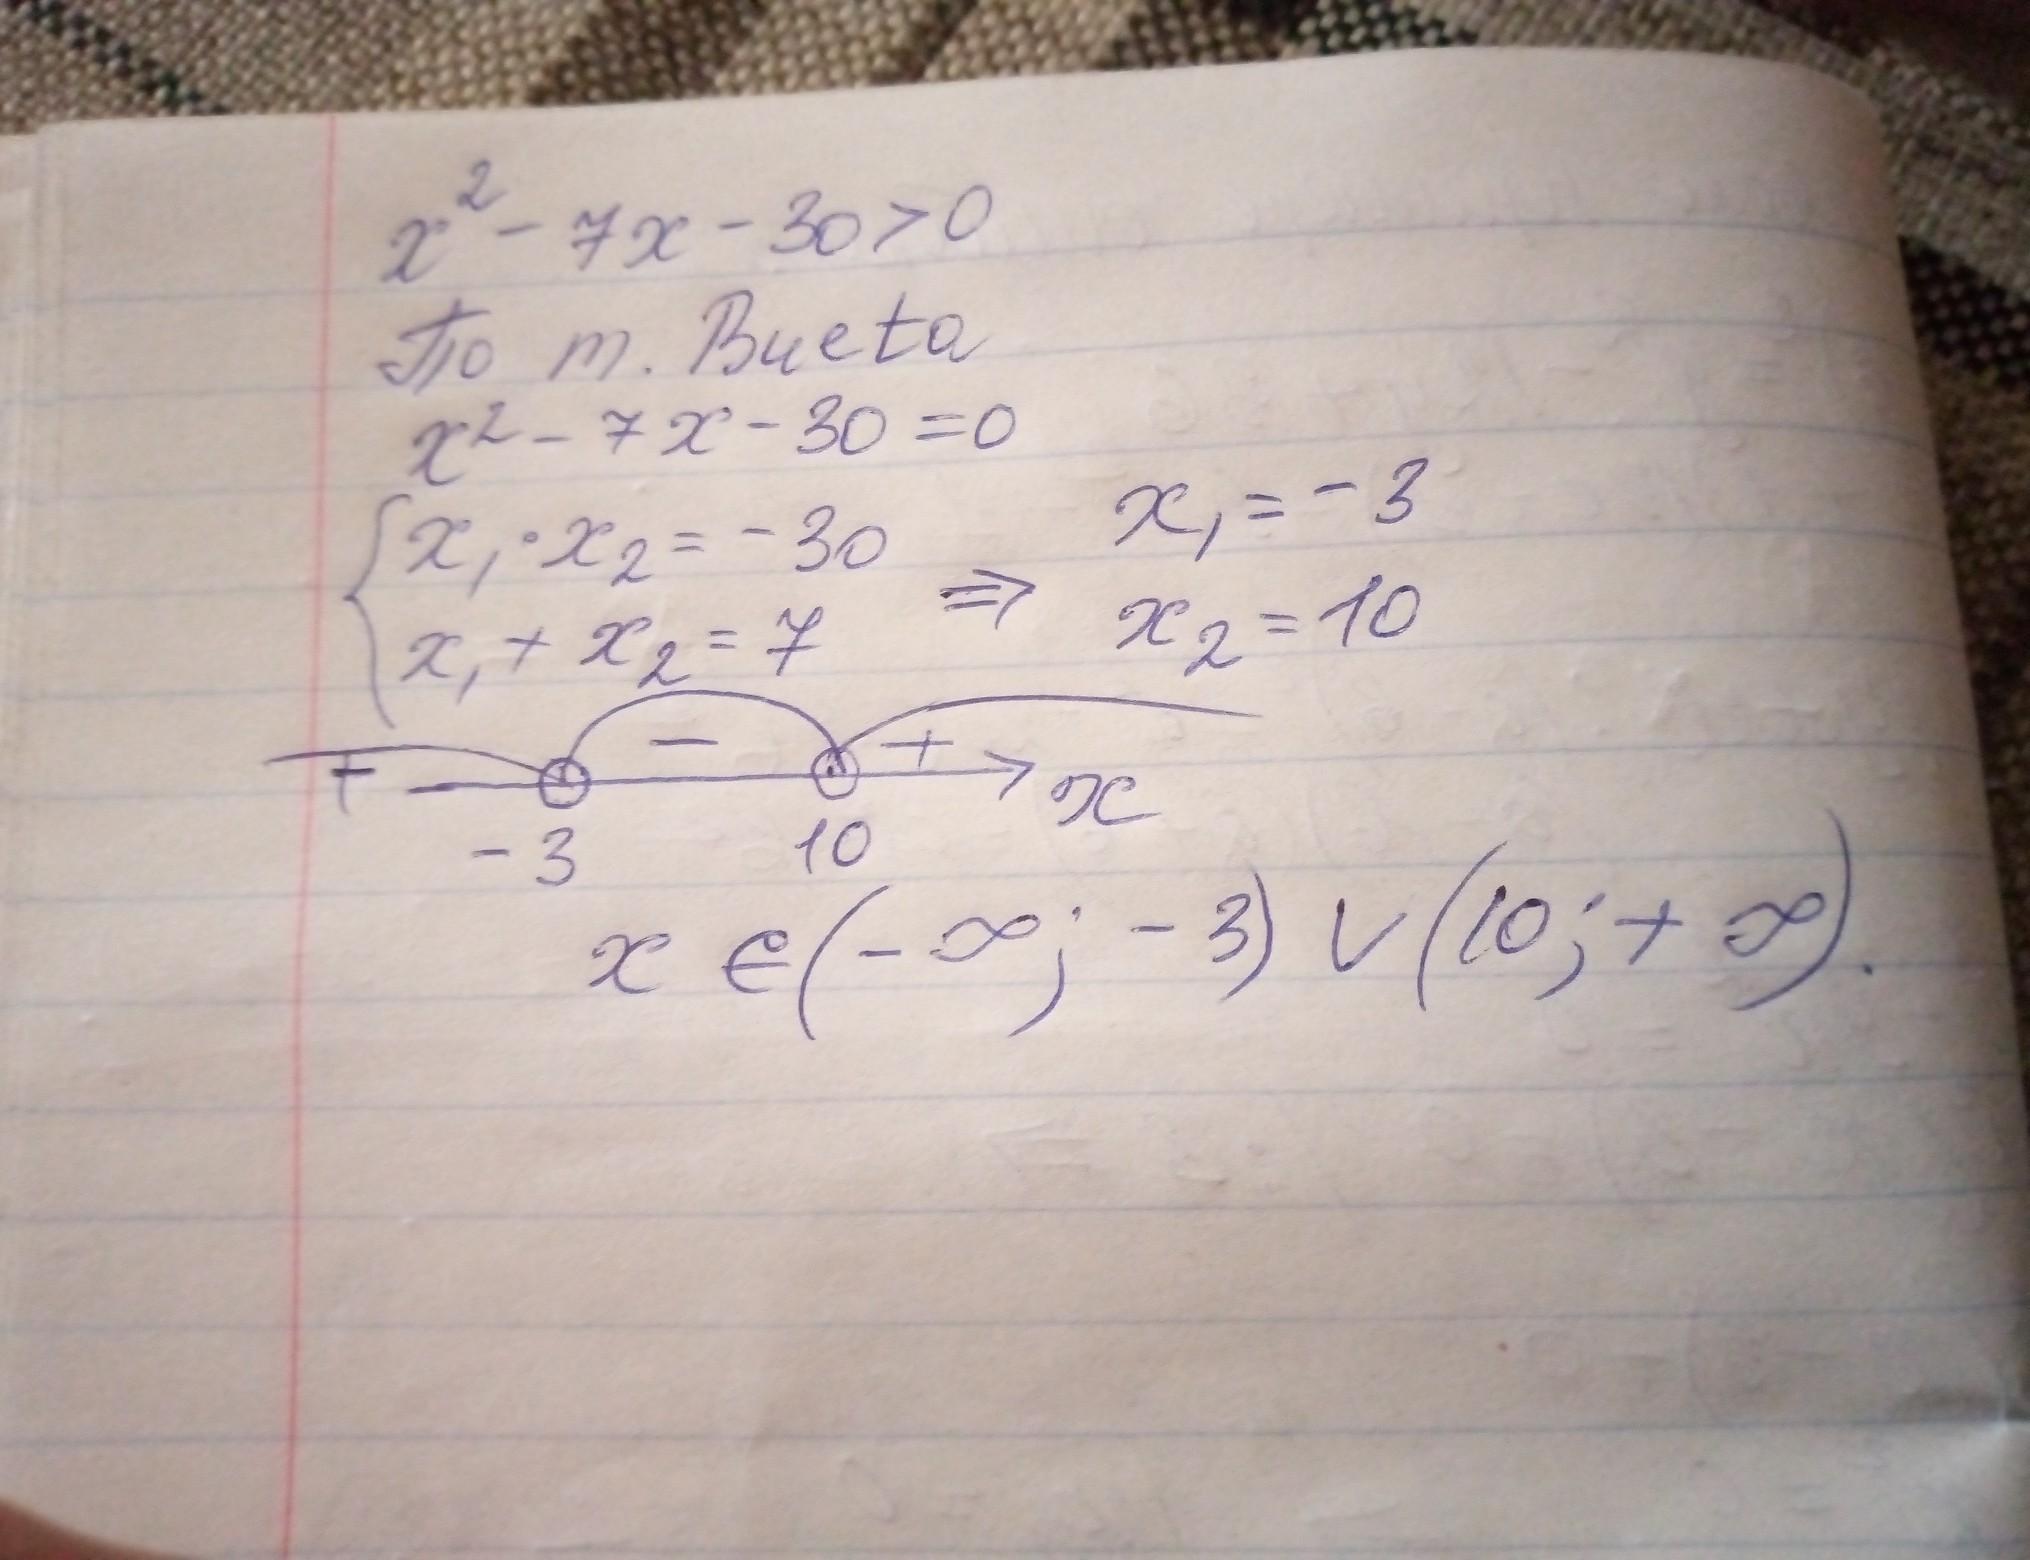 x² - 7x - 30 > 0
По т. Виета
x² - 7x - 30 = 0
{ x₁ · x₂ = -30
x₁ + x₂ = 7 ⇒ x₁ = -3
x₂ = 10
+ - + x
-3 10
x ∈ (-∞; -3) ∨ (10; +∞).